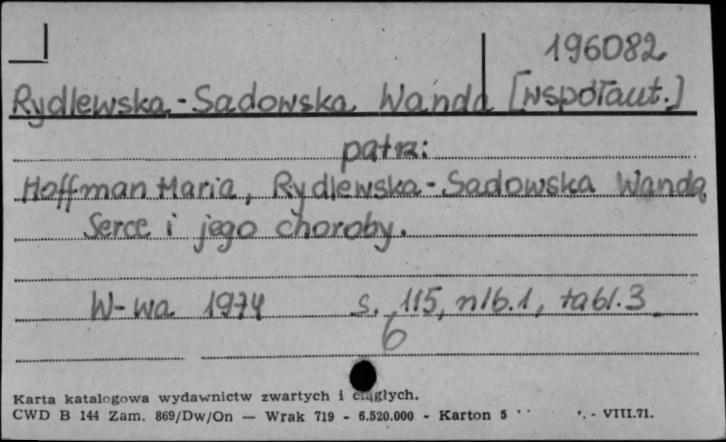 196082
Rydlewska-Sadowska Wanda [współaut.]
patrz:
Hoffman Maria, Rydlewska-Sadowska Wanda
Serce i jego choroby.
W-wa 1974 s. 115, nlb.1, tabl.3.
6
Karta katalogowa wydawnictw zwartych i ciągłych.
CWD B 144 Zam. 869/Dw/On — Wrak 719 - 6.520.000 - Karton 5 - VIII.71.